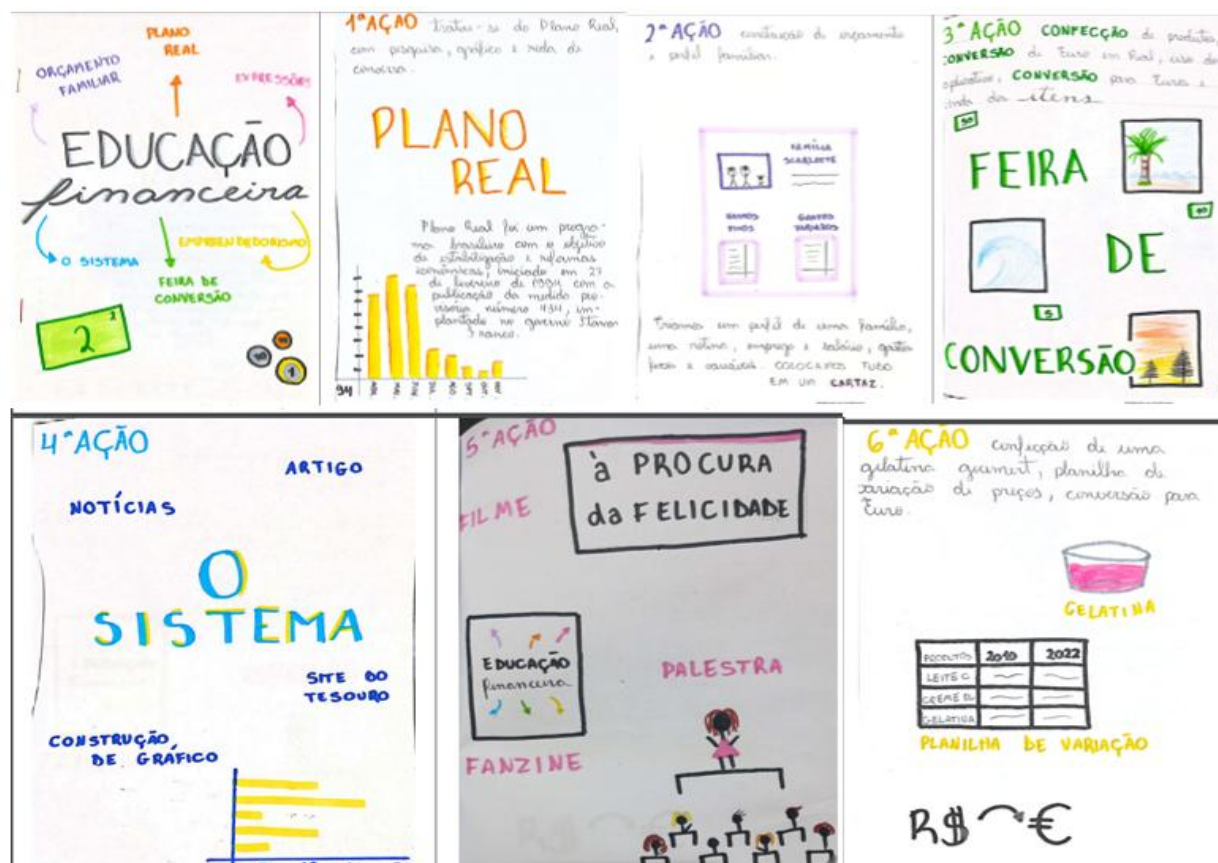 PLANO
REAL
ORÇAMENTO
FAMILIAR
EXPRESSÕES
EDUCAÇÃO
financeira
O SISTEMA
EMPREENDEDORISMO
FEIRA DE
CONVERSÃO
2
2
1
1ª AÇÃO tratou-se do Plano Real,
com pesquisa, gráfico e roda de
conversa.
PLANO
REAL
Plano Real foi um progra-
ma brasileiro com o objetivo
de estabilização e reformas
econômicas, iniciado em 27
de fevereiro de 1994 com a
publicação da medida pro-
visória número 434, im-
plantado no governo Itamar
Franco.
94
2ª AÇÃO construção de orçamento
e perfil familiar.
FAMÍLIA
SCARLETTE
GANHOS
FIXOS
GANHOS
VARIADOS
Criamos um perfil de uma família,
uma rotina, emprego e salário, gastos
fixos e variáveis. COLOCAMOS TUDO
EM UM CARTAZ.
3ª AÇÃO CONFECÇÃO de produtos,
CONVERSÃO de Euro em Real, uso do
aplicativo, CONVERSÃO para Euro e
venda dos itens
50
FEIRA
DE
5
CONVERSÃO
4ª AÇÃO
ARTIGO
NOTÍCIAS
O
SISTEMA
SITE DO
TESOURO
CONSTRUÇÃO
DE GRÁFICO
5ª AÇÃO
à PROCURA
da FELICIDADE
FILME
EDUCAÇÃO
financeira
PALESTRA
FANZINE
6ª AÇÃO confecção de uma
gelatina gourmet, planilha de
variação de preços, conversão para
Euro.
GELATINA
PRODUTOS 2010 2022
LEITE C.
CREME D.
GELATINA
PLANILHA DE VARIAÇÃO
R$ €